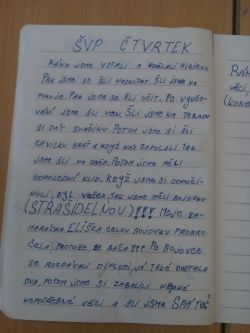 ŠVP ČTVRTEK
RÁNO JSME VSTALI A
PAK JSME SE ŠLI NASNÍDAT. ŠLI JSME NA
POKOJE. PAK JSME SE ŠLI UČIT. PO VYUČO-
VÁNÍ JSME ŠLI VEN. ŠLI JSME NA TERASU
SI DÁT SVAČINU. POTOM JSME SI ŠLI
CHVILKU HRÁT A KDYŽ NÁS ZAVOLALI TAK
JSME ŠLI NA OBĚD. POTOM JSME MĚLI
ODPOLEDNÍ KLID. KDYŽ JSME SI ODPOČI-
NULI, BYL VEČER, TAK JSME MĚLI BOJOVKU
(STRAŠIDELNOU)!!! MOJE KA-
MARÁDKA ELIŠKA CELOU BOJOVKU PROBRE-
ČELA, PROTOŽE SE BÁLA!!! PO BOJOVCE
SE ROZDÁVALI DIPLOMI, JÁ TAKÉ DOSTALA
POTOM JSME SI ZABALILI
NEPOTŘEBNÉ VĚCI A ŠLI JSME SPÁT
RÁN
VĚCI,
(KONE